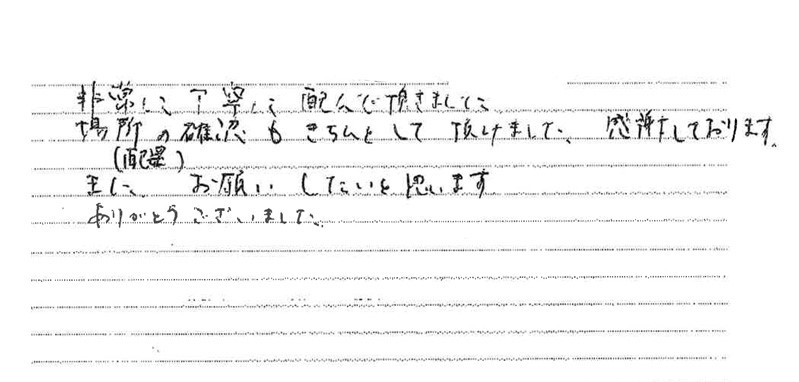 非常に丁寧に配んで頂きました
場所の確認もきちんとして頂けました 感謝しております。
(配置)
また、お願いしたいと思います
ありがとうございました。